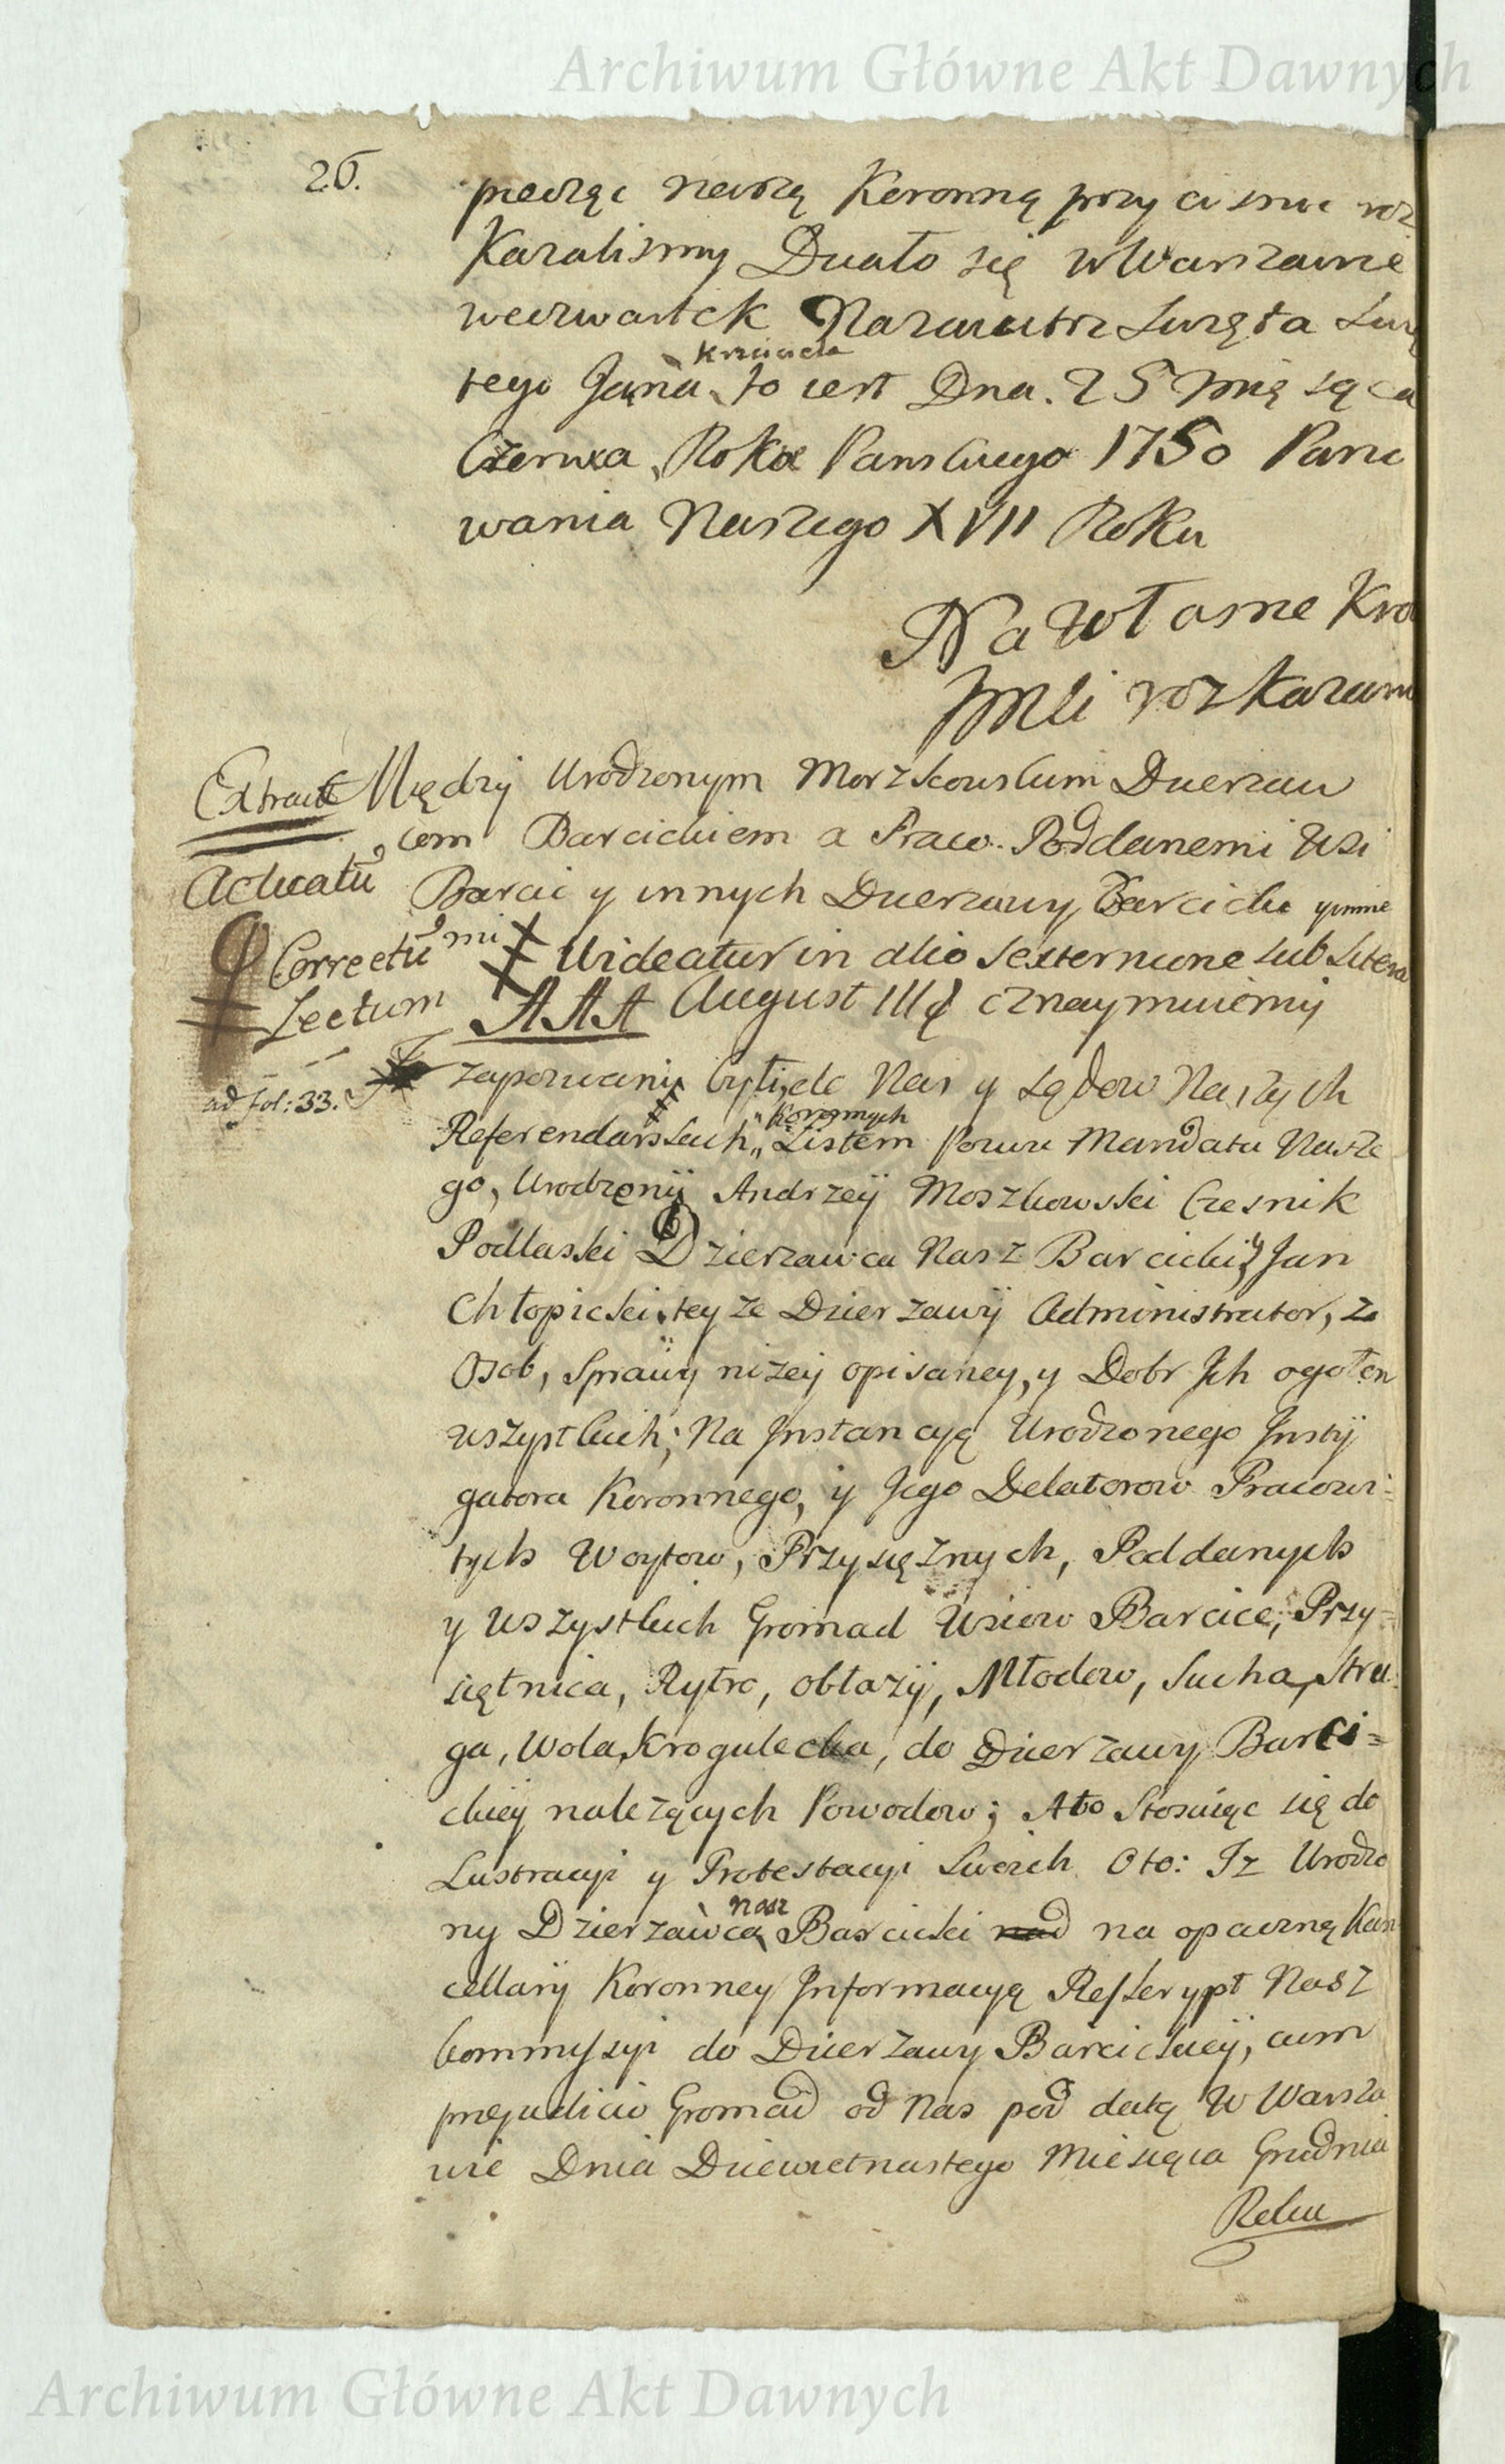 Archiwum Główne Akt Dawnych
26.
pieczęc naszą Koronną przycisnac roz
Kazalismy Działo się w Warszawie
weczwartek Nazaiutrz Swięta Swię
tego Jana Krzciciela to iest Dnia 25 Mięsąca
Czerwca Roku Panskiego 1750 Pano
wania Naszego XVII Roku
Na Własne Kro
Jmci rozkazani
Extract Między Urodzonym Morzkowskim Dzierzaw
cem Barcickiem a Prac. Poddanemi Wsi
Acticatū Barcic y innych Dzierzawy Barcickie ginnie
Correctū mi Videatur in alio Sexternione sub Litera
Lectum AAA August III cznaymuiemy
ad fol: 33. zapozwany byli, do Nas y Sądow Naszych
Referendarskich, Koronnych Listem Pozwu Mandatu Nasze
go, Urodzony Andrzeÿ Moszkowski Czesnik
Podlaski Dzierzawca Nasz Barcicki, y Jan
Chłopicki teyze Dzierzawÿ Administrator, z
Osob, Sprawÿ nizeÿ opisaney, y Dobr Jch ogołem
wszystkich; Na Jnstancyą Urodzonego Jnsty
gatora Koronnego, ÿ Jego Delatorow Pracowi-
tych Woytow, Przysięznych, Poddanych
y wszystkich Gromad Wsiow Barcice, Przy-
siętnica, Rytro, obłazÿ, Młodow, Sucha, Stru-
ga, Wola, Krogulecka, do Dzierzawy Barci=
ckiey nalezących Powodow; Ato Stosuiąc się do
Lustracyi y Protestacyi Swoich Oto: Jz Urodzo
ny Dzierzawca nasz Barcicki nad na opaczną Kan
cellarÿ Koronneÿ Jnformacyą Reskrypt Nasz
Commyssyi do Dzierzawy Barcickieÿ, cum
prejudicio Gromad od Nas pod datą w Warsza
wie Dnia Dziewietnastego Miesiąca Grudnia
Roku
Archiwum Główne Akt Dawnych